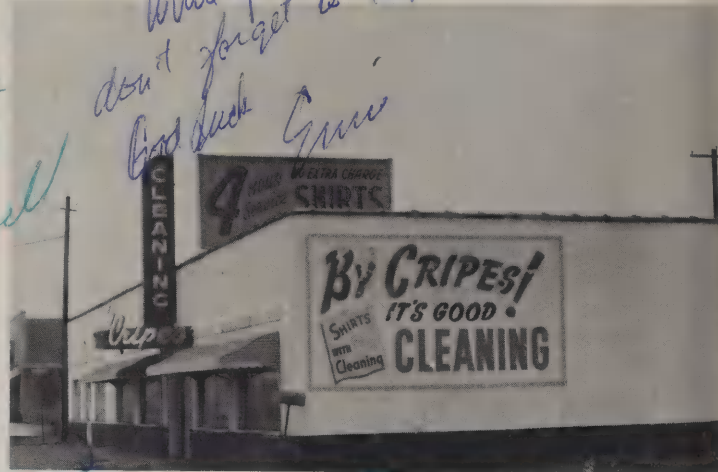 don't forget to
Good luck
Ernie
CLEANING
Cripes
4 HOUR SERVICE
NO EXTRA CHARGE
SHIRTS
BY CRIPES!
IT'S GOOD
SHIRTS
WITH
Cleaning
CLEANING